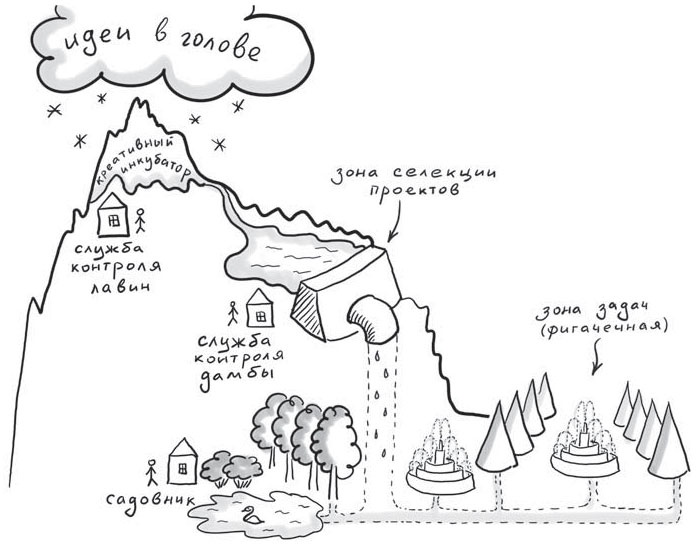 идеи в голове
креативный
инкубатор
служба
контроля
лавин
зона селекции
проектов
служба
контроля
дамбы
зона задач
(фигачечная)
садовник